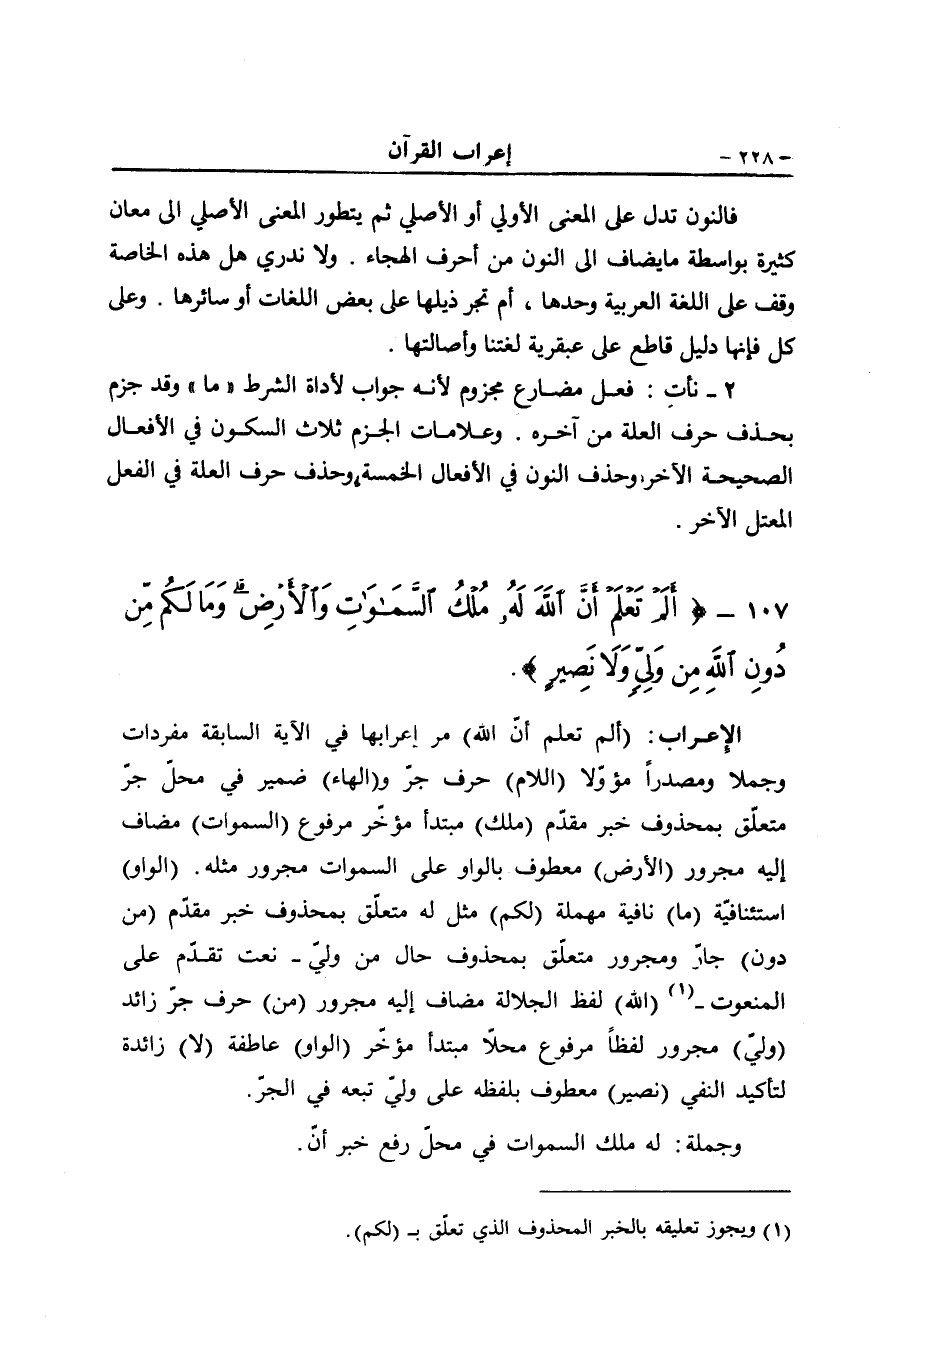 - ٢٢٨ - إعراب القرآن
فالنون تدل على المعنى الأولي أو الأصلي ثم يتطور المعنى الأصلي الى معان
كثيرة بواسطة مايضاف الى النون من أحرف الهجاء . ولا ندري هل هذه الخاصة
وقف على اللغة العربية وحدها ، أم تجر ذيلها على بعض اللغات أو سائرها . وعلى
كل فإنها دليل قاطع على عبقرية لغتنا وأصالتها .
٢ ـ نأتِ : فعـل مضـارع مجزوم لأنـه جواب لأداة الشرط « ما » وقد جزم
بحـذف حرف العلة من آخـره . وعـلامـات الجـزم ثلاث السكـون في الأفعـال
الصحيحـة الآخر، وحذف النون في الأفعال الخمسة، وحذف حرف العلة في الفعل
المعتل الآخر .
١٠٧ ـ ﴿ أَلَمْ تَعْلَمْ أَنَّ ٱللَّهَ لَهُۥ مُلْكُ ٱلسَّمَـٰوَٰتِ وَٱلْأَرْضِ ۗ وَمَا لَكُم مِّن
دُونِ ٱللَّهِ مِن وَلِيٍّ وَلَا نَصِيرٍ ﴾.
الإعـراب: (ألم تعلم أنّ الله) مر إعرابها في الآية السابقة مفردات
وجملا ومصدراً مؤوّلا (اللام) حرف جرّ و(الهاء) ضمير في محلّ جرّ
متعلّق بمحذوف خبر مقدّم (ملك) مبتدأ مؤخّر مرفوع (السموات) مضاف
إليه مجرور (الأرض) معطوف بالواو على السموات مجرور مثله. (الواو)
استئنافيّة (ما) نافية مهملة (لكم) مثل له متعلّق بمحذوف خبر مقدّم (من
دون) جارّ ومجرور متعلّق بمحذوف حال من وليّ ـ نعت تقـدّم على
المنعوت ـ(١) (الله) لفظ الجلالة مضاف إليه مجرور (من) حرف جرّ زائد
(وليّ) مجرور لفظاً مرفوع محلّا مبتدأ مؤخّر (الواو) عاطفة (لا) زائدة
لتأكيد النفي (نصير) معطوف بلفظه على وليّ تبعه في الجرّ.
وجملة: له ملك السموات في محلّ رفع خبر أنّ.
(١) ويجوز تعليقه بالخبر المحذوف الذي تعلّق بـ (لكم).